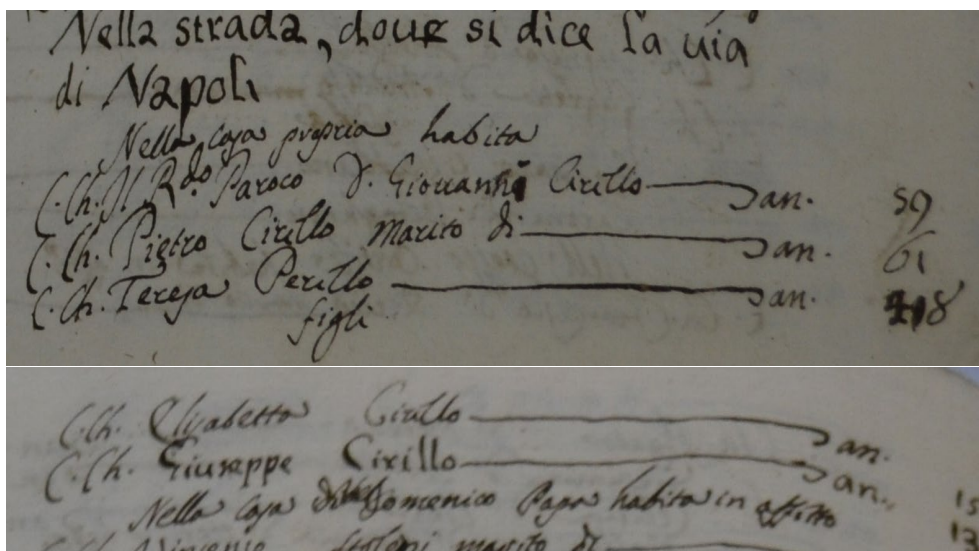 Nella strada, doue si dice la uia
di Napoli
Nella casa propria habita
C. Ch. Il R.do Paroco D. Giouanni Cirillo an. 59
C. Ch. Pietro Cirillo marito di an. 61
C. Ch. Teresa Perillo an. 48
figli
C. Ch. Elisabetta Cirillo an.
C. Ch. Giuseppe Cirillo an.
Nella casa Domenico Papa habita in affitto
marito di